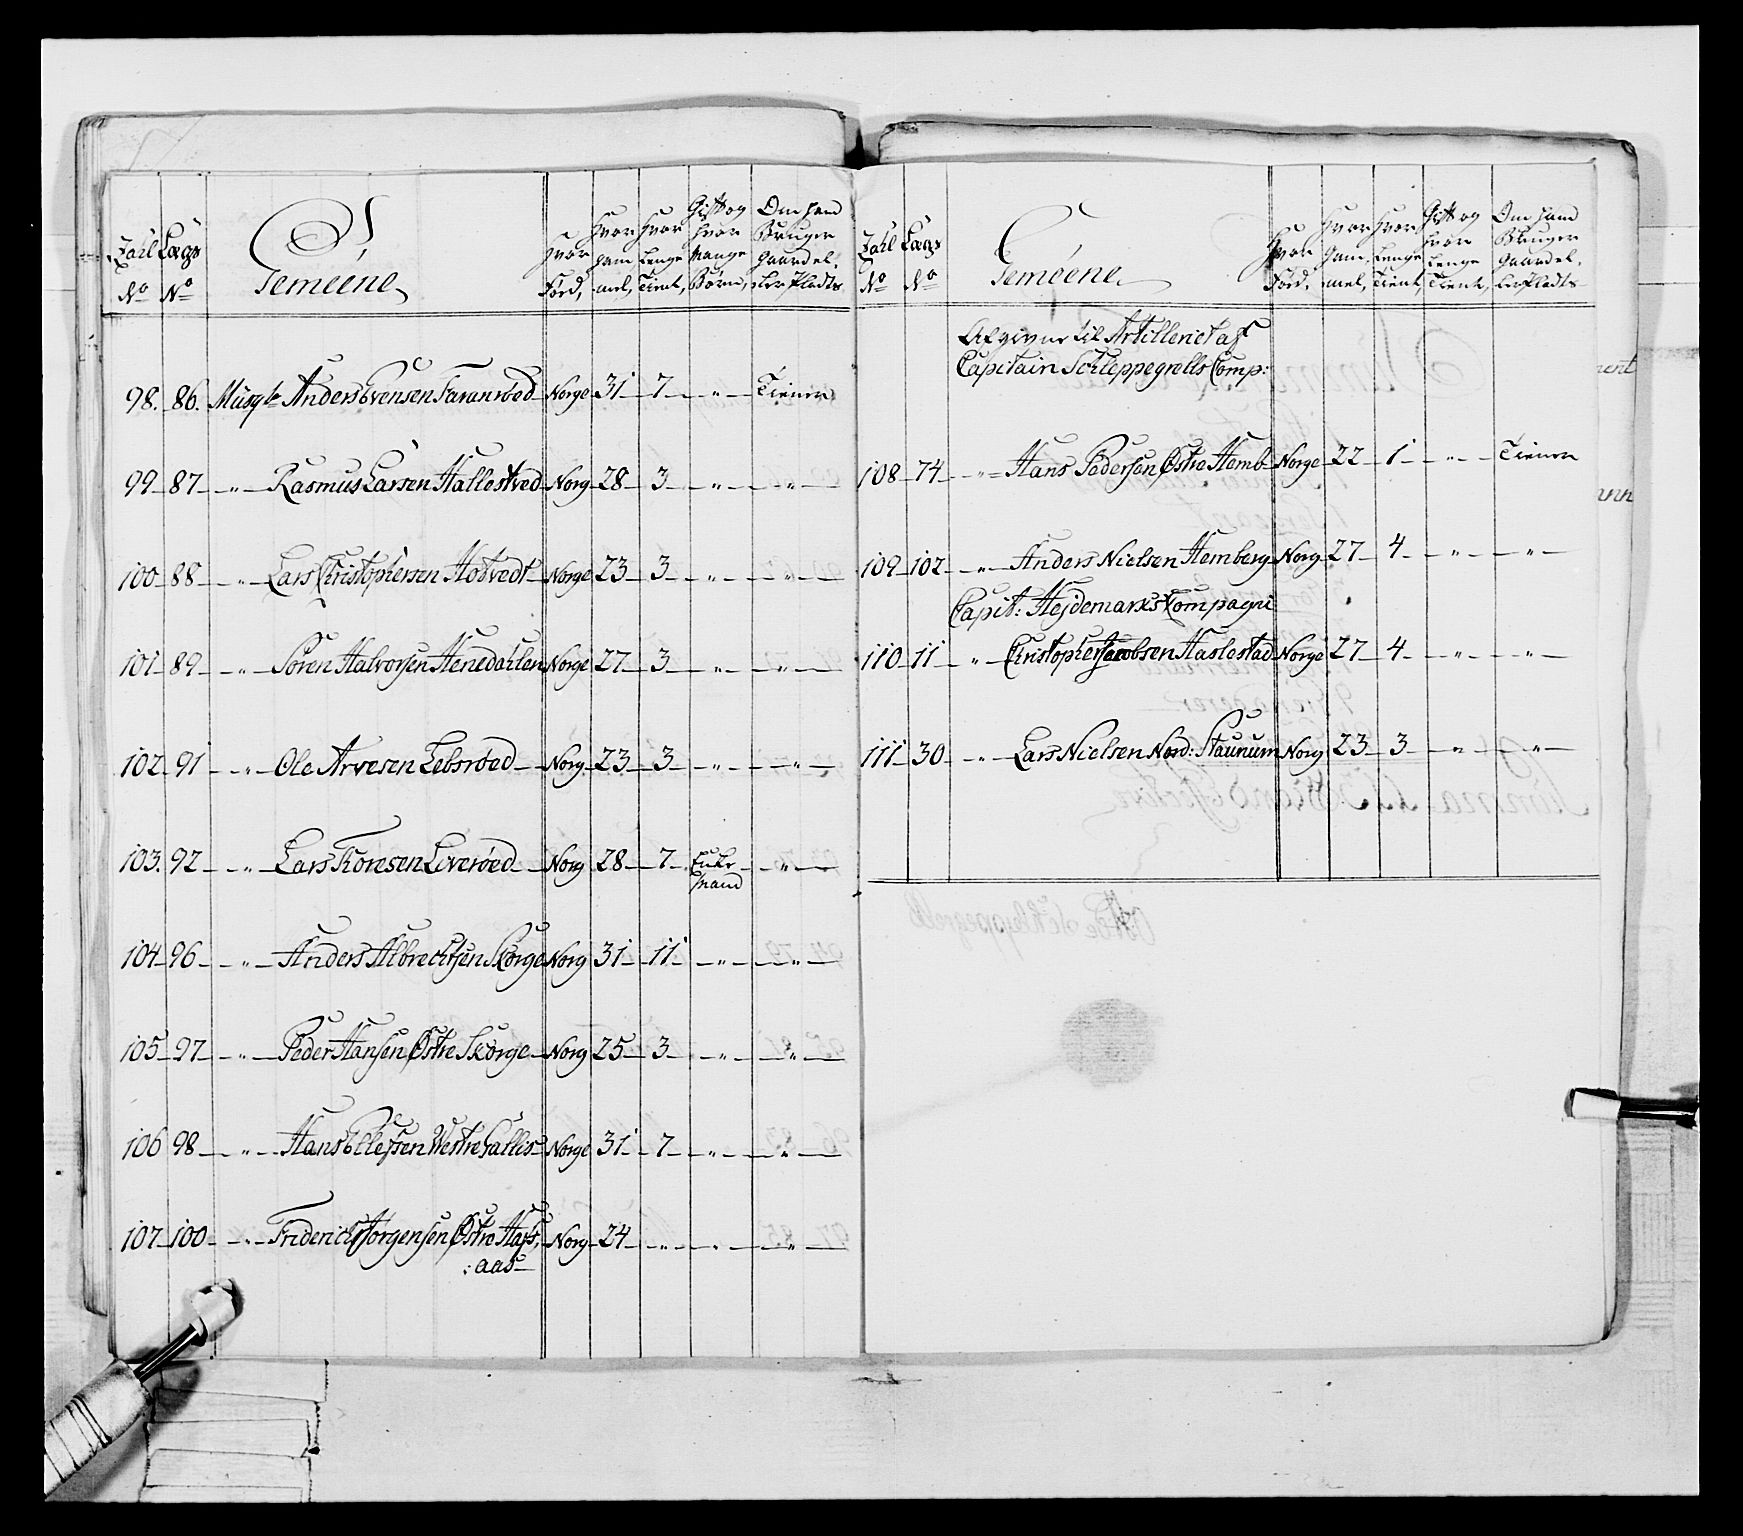 Zahl No Lægs No Gemeene Hvor Fød, Hvor gam mel, Hvor Lenge Tient, Gift og hvor mange Børn, Om hand Bruger Gaard el, ler Pladts
98. 86. Musqtr Anders Evensen Faranrøed Norge 31 7 " Tiener
99 87 " Rasmus Larsen Hallestved Norg 28 3 " "
100 88 " Lars Christophersen Hotvedt Norge 23 3 " "
101 89 " Søren Halvorsen Henedahlen Norge 27 3 " "
102 91 " Ole Arvesen Lebsrøed Norg 23 3 " "
103. 92 " Lars Thoresen Leverøed Norg 28 7 Enke Mand "
104 96 " Anders Albrechtsen Skorge Norg 31 11 " "
105 97 " Peder Hansen Østre Skorge Norg 25 3 " "
106 98 " Hans Ellefsen Westre Hallis Norge 31 7 " "
107 100 " Friderich Jørgensen Østre Hajs, Norg 24 " " "
:aas
Zahl No Lægs No Gemeene Hvor Fød, Hvor Gam, mel, Hvor Lenge Tient, Gift og hvor Lenge Tient, Om hand Bruger Gaard el, ler Pladts
Afgivne til Artilleriet af
Capitain Schleppegrells Comp:
108 74 " Hans Pedersen Østre Hemb Norge 22 1 " Tiener
109 102 " Anders Nielsen Hemberg Norg 27 4 " "
Capit: Hejdemarks Compagni
110 11 " Christopher Jacobsen Haslestad Norge 27 4 " "
111 30 " Lars Nielsen Nord: Staunum Norg 23 3 " "